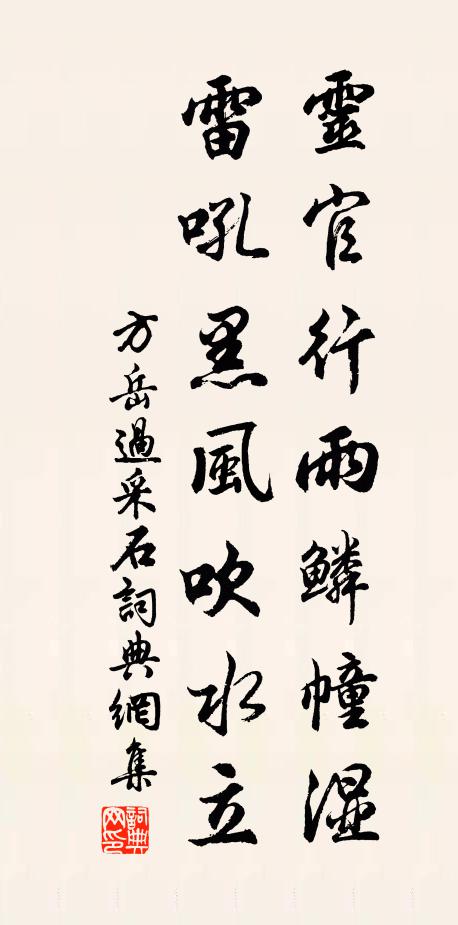 靈官行雨鱗幢湿
雷吼黑風吹水立
方岳過采石詞典網集
詞典
网印